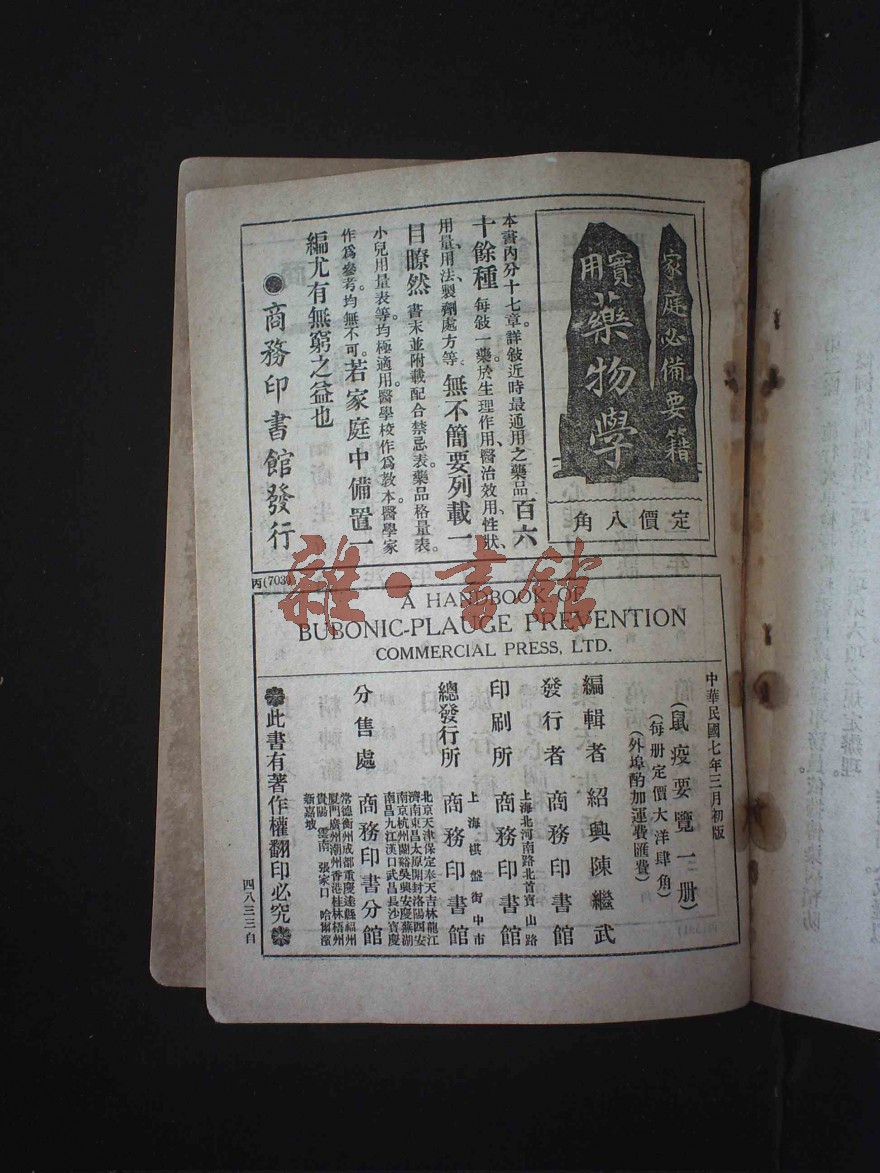 家庭必備要籍
實用藥物學
定價八角
本書內分十七章詳敍近時最通用之藥品百六
十餘種每敍一藥於生理作用、醫治效用、性狀、
用量、用法、製劑處方等、無不簡要列載一
目瞭然書末並附載配合禁忌表。藥品格量表。
小兒用量表等。均極適用。醫學校作爲敎本醫學家
作爲參考。均無不可。若家庭中備置一
編尤有無窮之益也
●商務印書館發行
丙(703)
A HANDBOOK OF
BUBONIC-PLAUGE PREVENTION
COMMERCIAL PRESS, LTD.
中華民國七年三月初版
(鼠疫要覽一册)
(每册定價大洋肆角)
(外埠酌加運費匯費)
編輯者 紹興陳繼武
發行者 商務印書館
上海北河南路北首寶山路
印刷所 商務印書館
上海棋盤街中市
總發行所 商務印書館
北京天津保定奉天吉林龍江
濟南東昌太原開封洛陽西安
南京杭州蘭谿吳興安慶蕪湖
南昌九江漢口武昌長沙寶慶
分售處 商務印書分館
常德衡州成都重慶達縣福州
廈門廣州潮州香港桂林梧州
貴陽 雲南 張家口 哈爾濱
新嘉坡
此書有著作權翻印必究
四八三三自
雜·書館